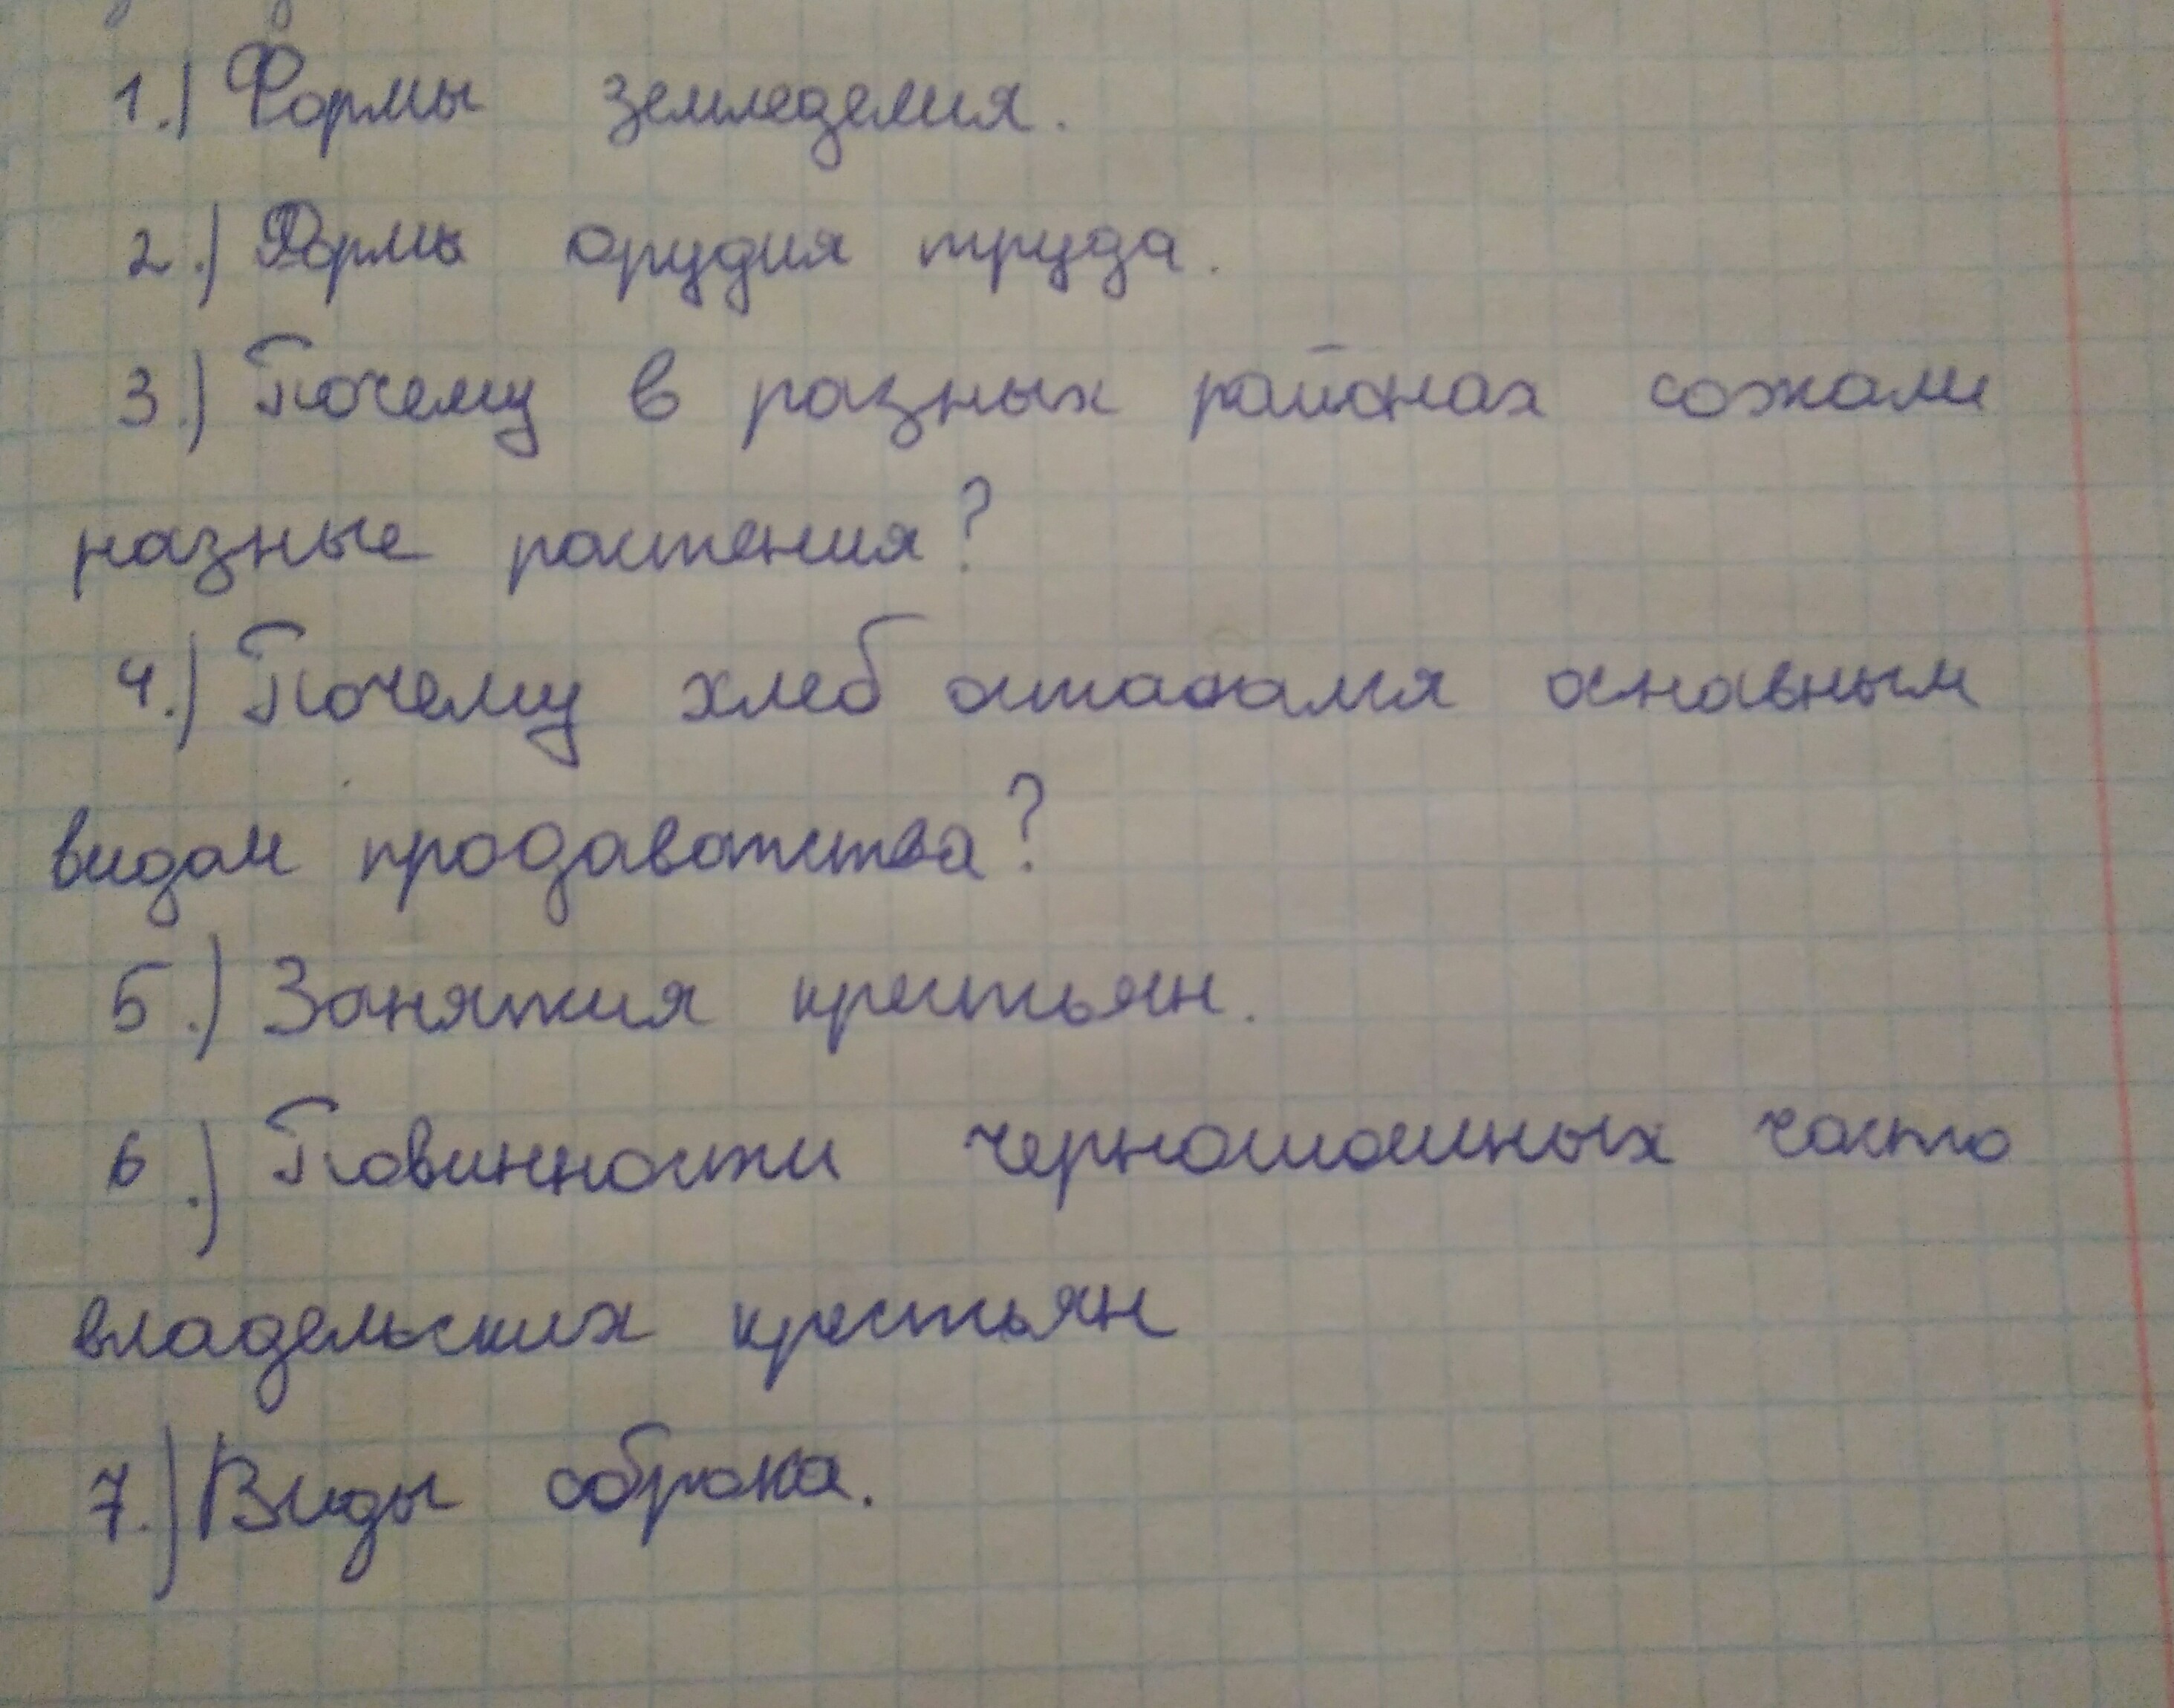 1.) Формы земледелия.
2.) Формы орудия труда.
3.) Почему в разных районах сажали
разные растения?
4.) Почему хлеб оставался основным
видом продавотства?
5.) Занятия крестьян.
6.) Повинности черношошных часто
владельских крестьян
7.) Виды оброка.